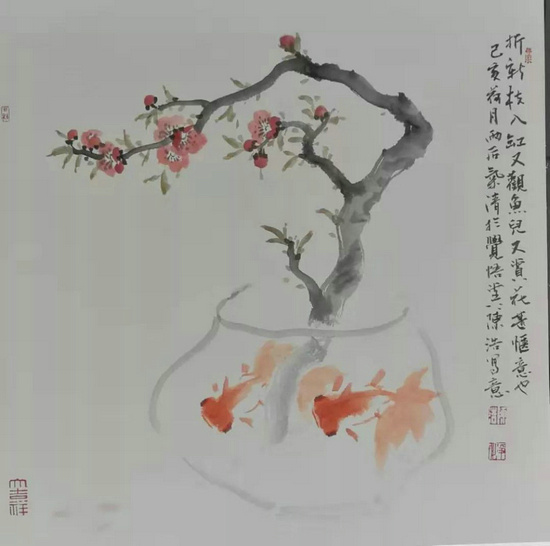 折新枝入缸又觀魚兒又賞花甚愜意也
己亥荷月雨后氣清於覺悟堂陳浩寫意
大吉祥